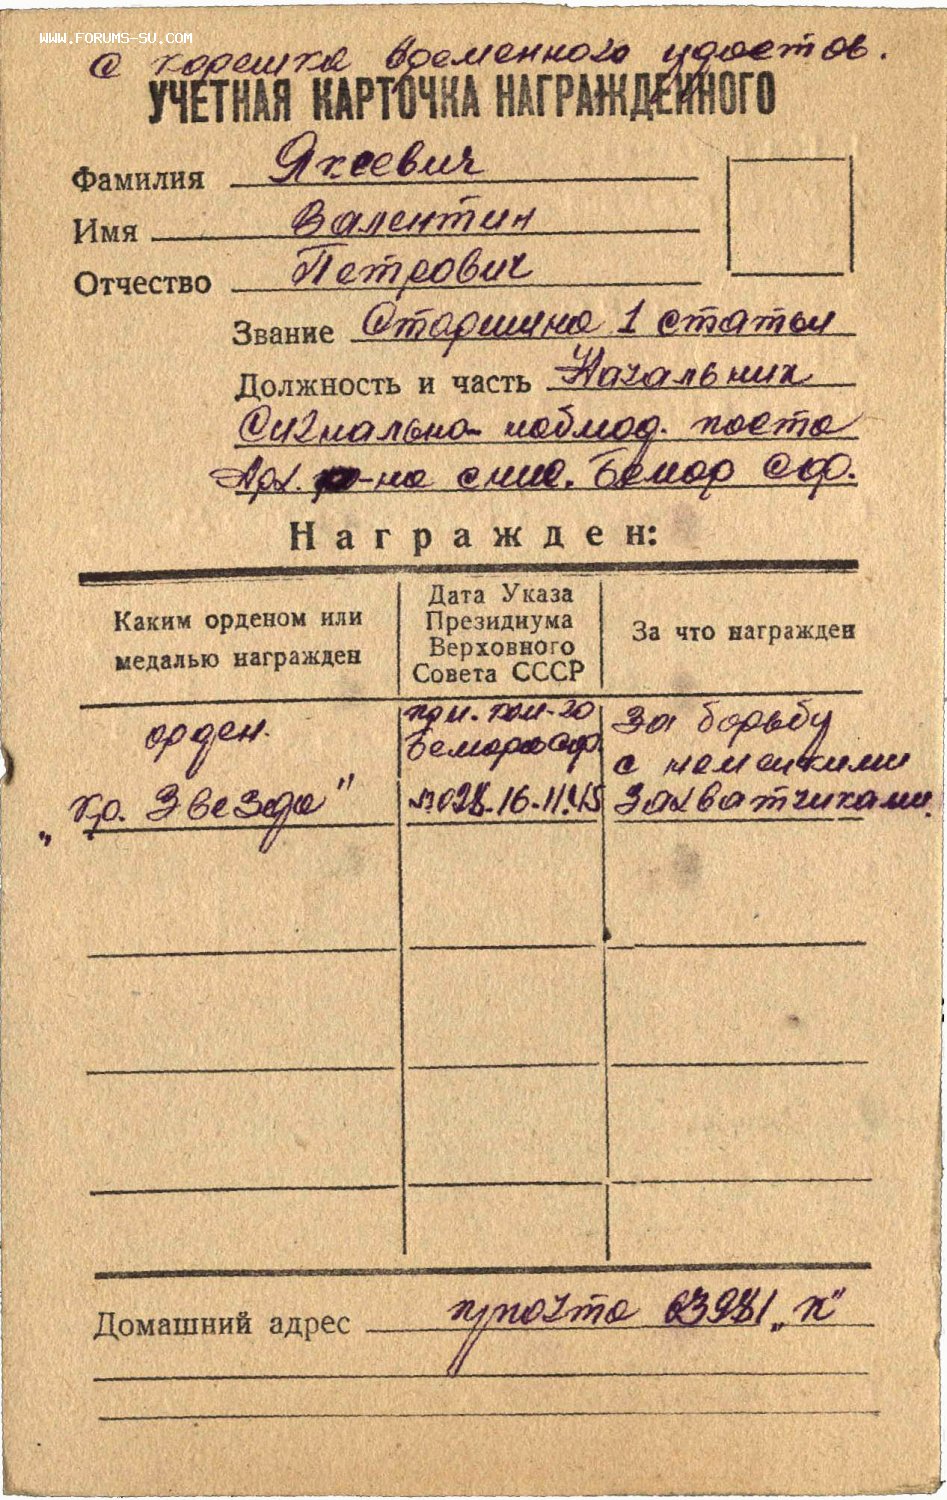 WWW.FORUMS-SU.COM
с корешка временного удостов.
УЧЕТНАЯ КАРТОЧКА НАГРАЖДЕННОГО
Фамилия Яхсевич
Имя Валентин
Отчество Петрович
Звание Старшина 1 статьи
Должность и часть Начальник
Сигнально-наблюд. поста
Арх. р-на снис. Беломор Сф.
Награжден:
Каким орденом или
медалью награжден
Дата Указа
Президиума
Верховного
Совета СССР
За что награжден
орден
„Кр. Звезда"
ком-го
№028-16-11.45
За борьбу
с немецкими
захватчиками.
Домашний адрес п/почта 63981 „к"